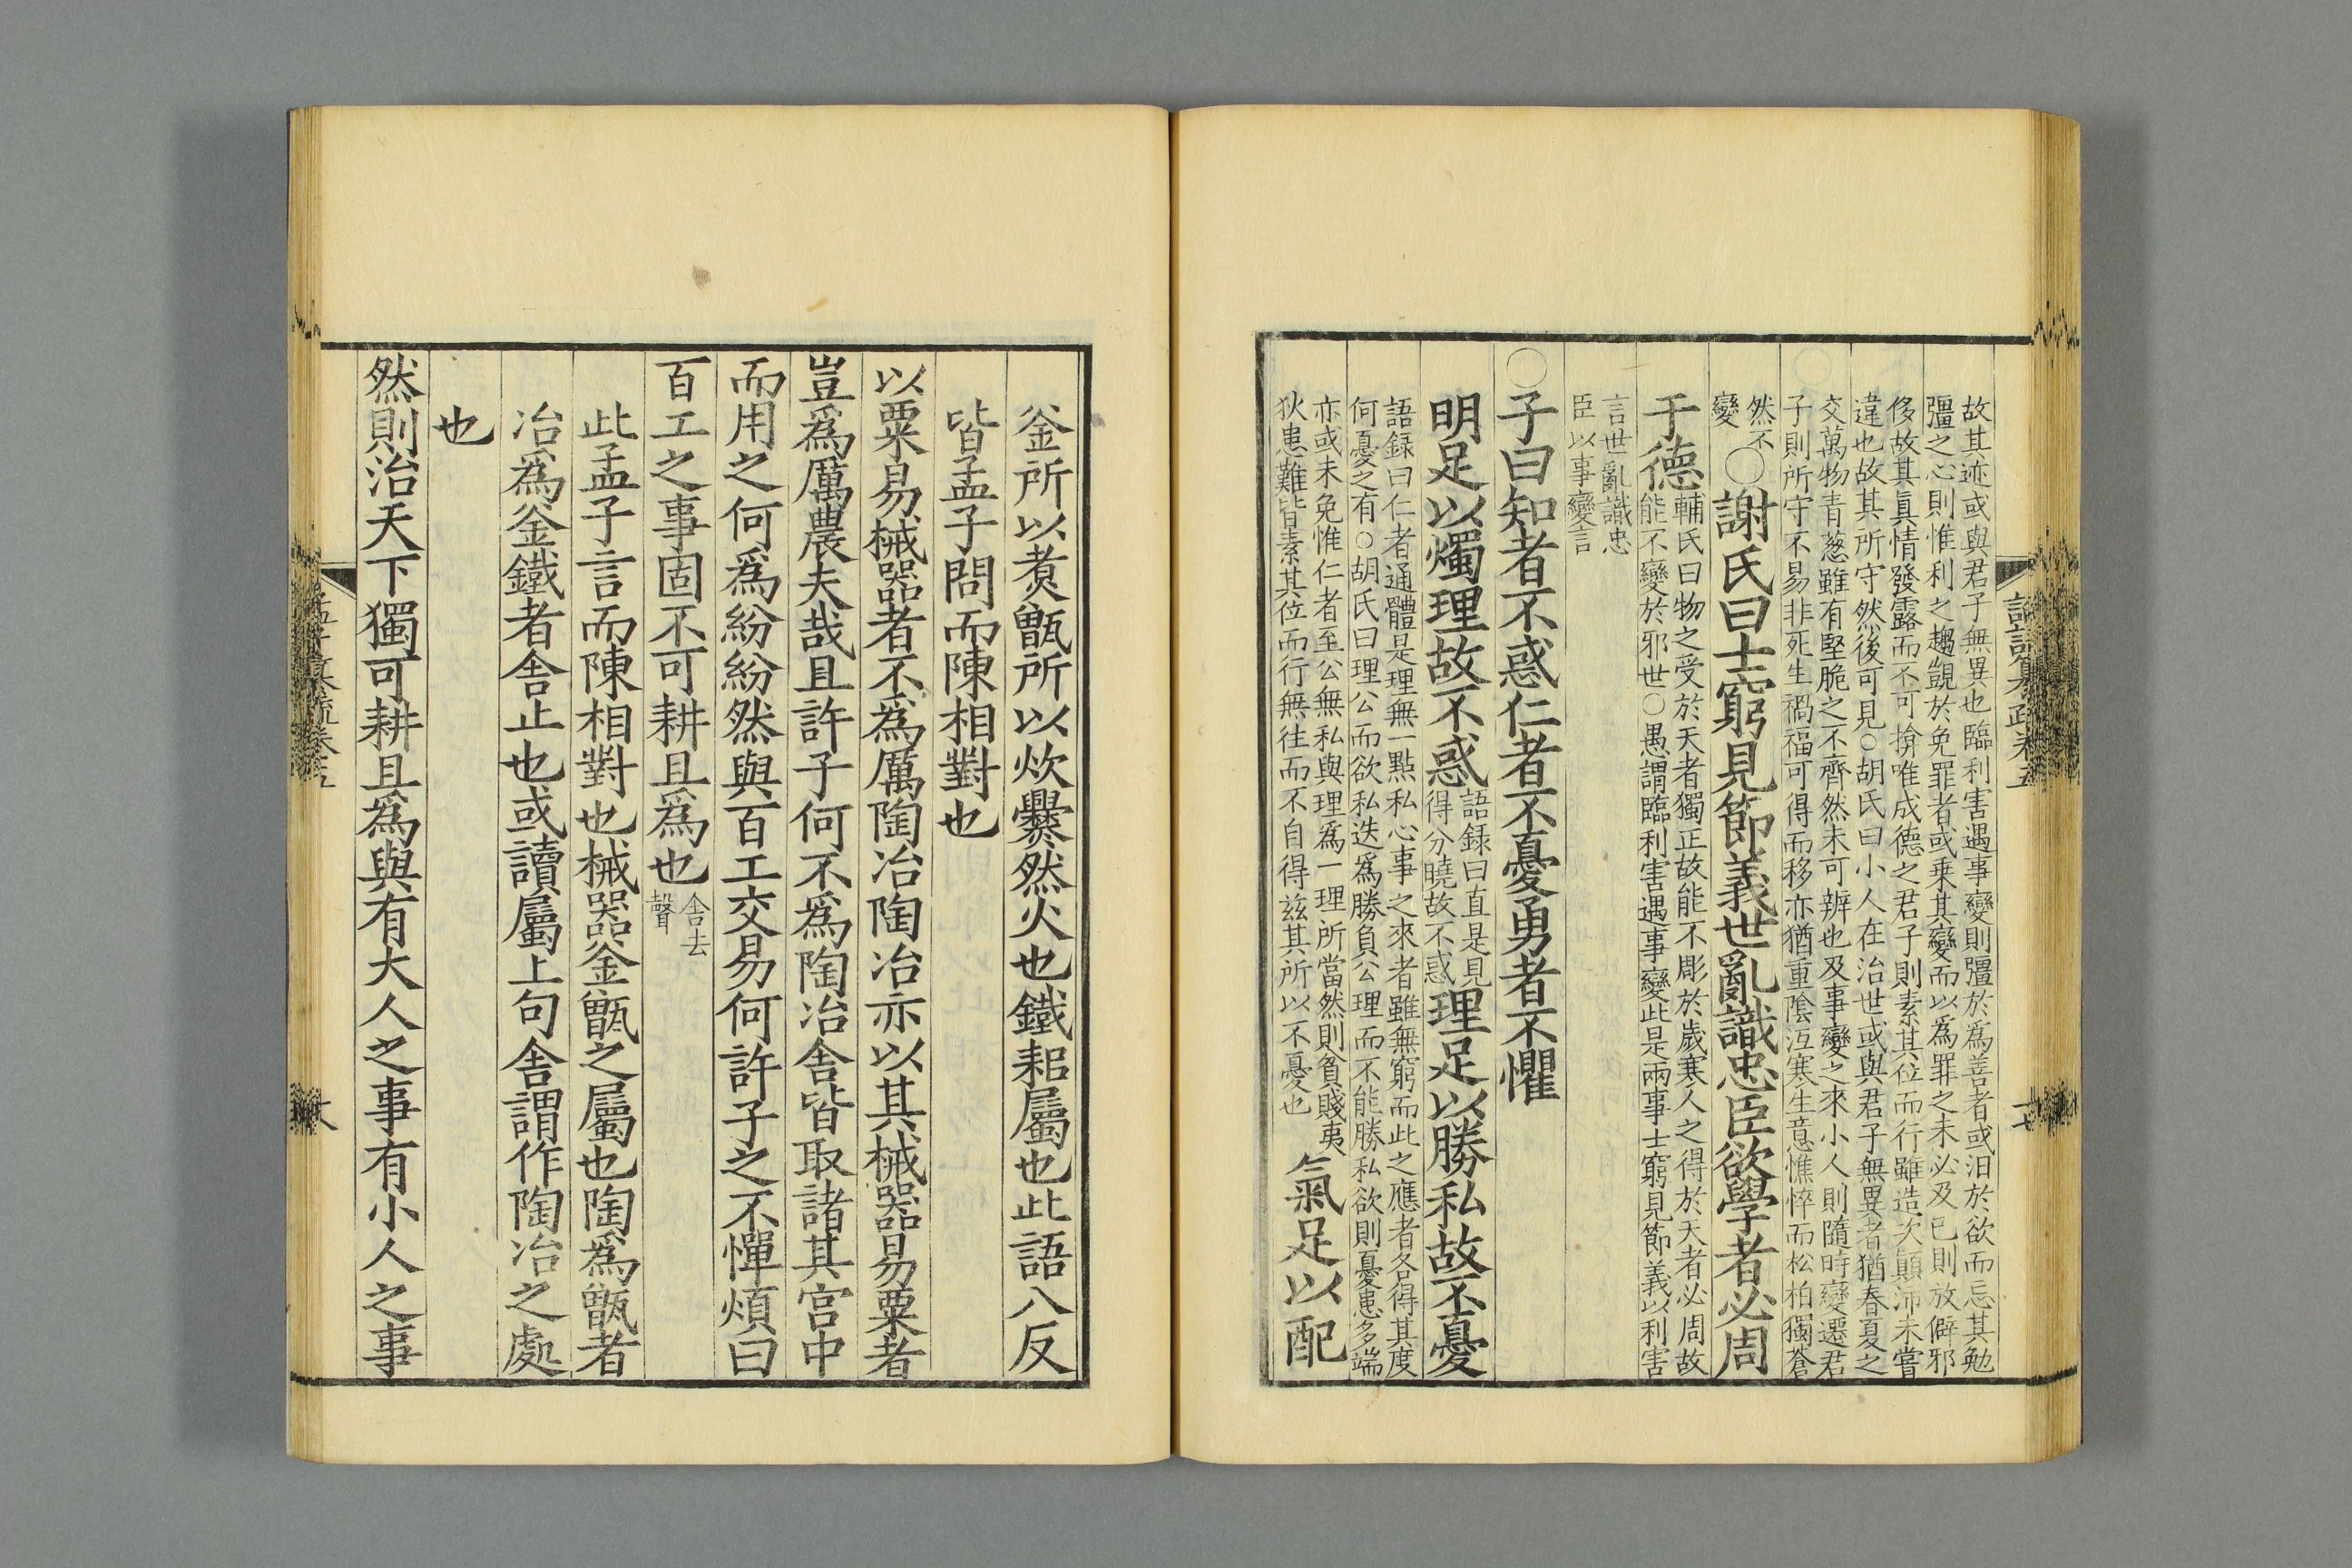 故其迹或與君子無異也臨利害遇事變則彊於爲善者或汨於欲而忘其勉
彊之心則惟利之趨覬於免罪者或乗其變而以爲罪之未必及已則放僻邪
侈故其真情發露而不可揜唯成德之君子則素其位而行雖造次顛沛未嘗
違也故其所守然後可見○胡氏曰小人在治世或與君子無異者猶春夏之
交萬物青葱雖有堅脆之不齊然未可辨也及事變之來小人則隨時變遷君
子則所守不易非死生禍福可得而移亦猶重陰冱寒生意憔悴而松柏獨蒼
然不
變
○謝氏曰士窮見節義世亂識忠臣欲學者必周
于德
輔氏曰物之受於天者獨正故能不彫於歲寒人之得於天者必周故
能不變於邪世○愚謂臨利害遇事變此是兩事士窮見節義以利害
言世亂識忠
臣以事變言
○子曰知者不惑仁者不憂勇者不懼
明足以燭理故不惑
語録曰直是見
得分曉故不惑
理足以勝私故不憂
語録曰仁者通體是理無一點私心事之來者雖無窮而此之應者各得其度
何憂之有○胡氏曰理公而欲私迭爲勝負公理而不能勝私欲則憂患多端
亦或未免惟仁者至公無私與理爲一理所當然則貧賤夷
狄患難皆素其位而行無往而不自得兹其所以不憂也
氣足以配
釜所以煑甑所以炊爨然火也鐵耜屬也此語八反
皆孟子問而陳相對也
以粟易械器者不爲厲陶冶陶冶亦以其械器易粟者
豈爲厲農夫哉且許子何不爲陶冶舍皆取諸其宫中
而用之何爲紛紛然與百工交易何許子之不憚煩曰
百工之事固不可耕且爲也
舍去
聲
此孟子言而陳相對也械器釜甑之屬也陶爲甑者
冶爲釜鐵者舍止也或讀屬上句舍謂作陶冶之處
也
然則治天下獨可耕且爲與有大人之事有小人之事